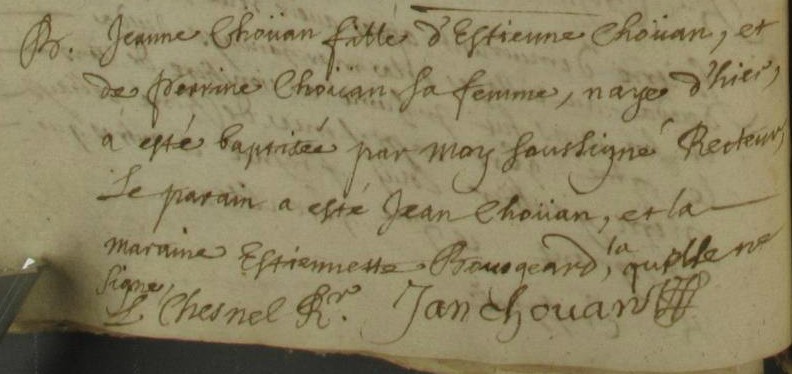 B. Jeanne Choüan fille d'Estienne Choüan, et
de perrine Choüan sa femme, naye d'hier,
a esté baptisée par moy soussigné Recteur,
Le parain a esté Jean Choüan, et la
maraine Estiennette Bougeard, la quelle ne
signe,
L. Chesnel Rr. Jan chouan